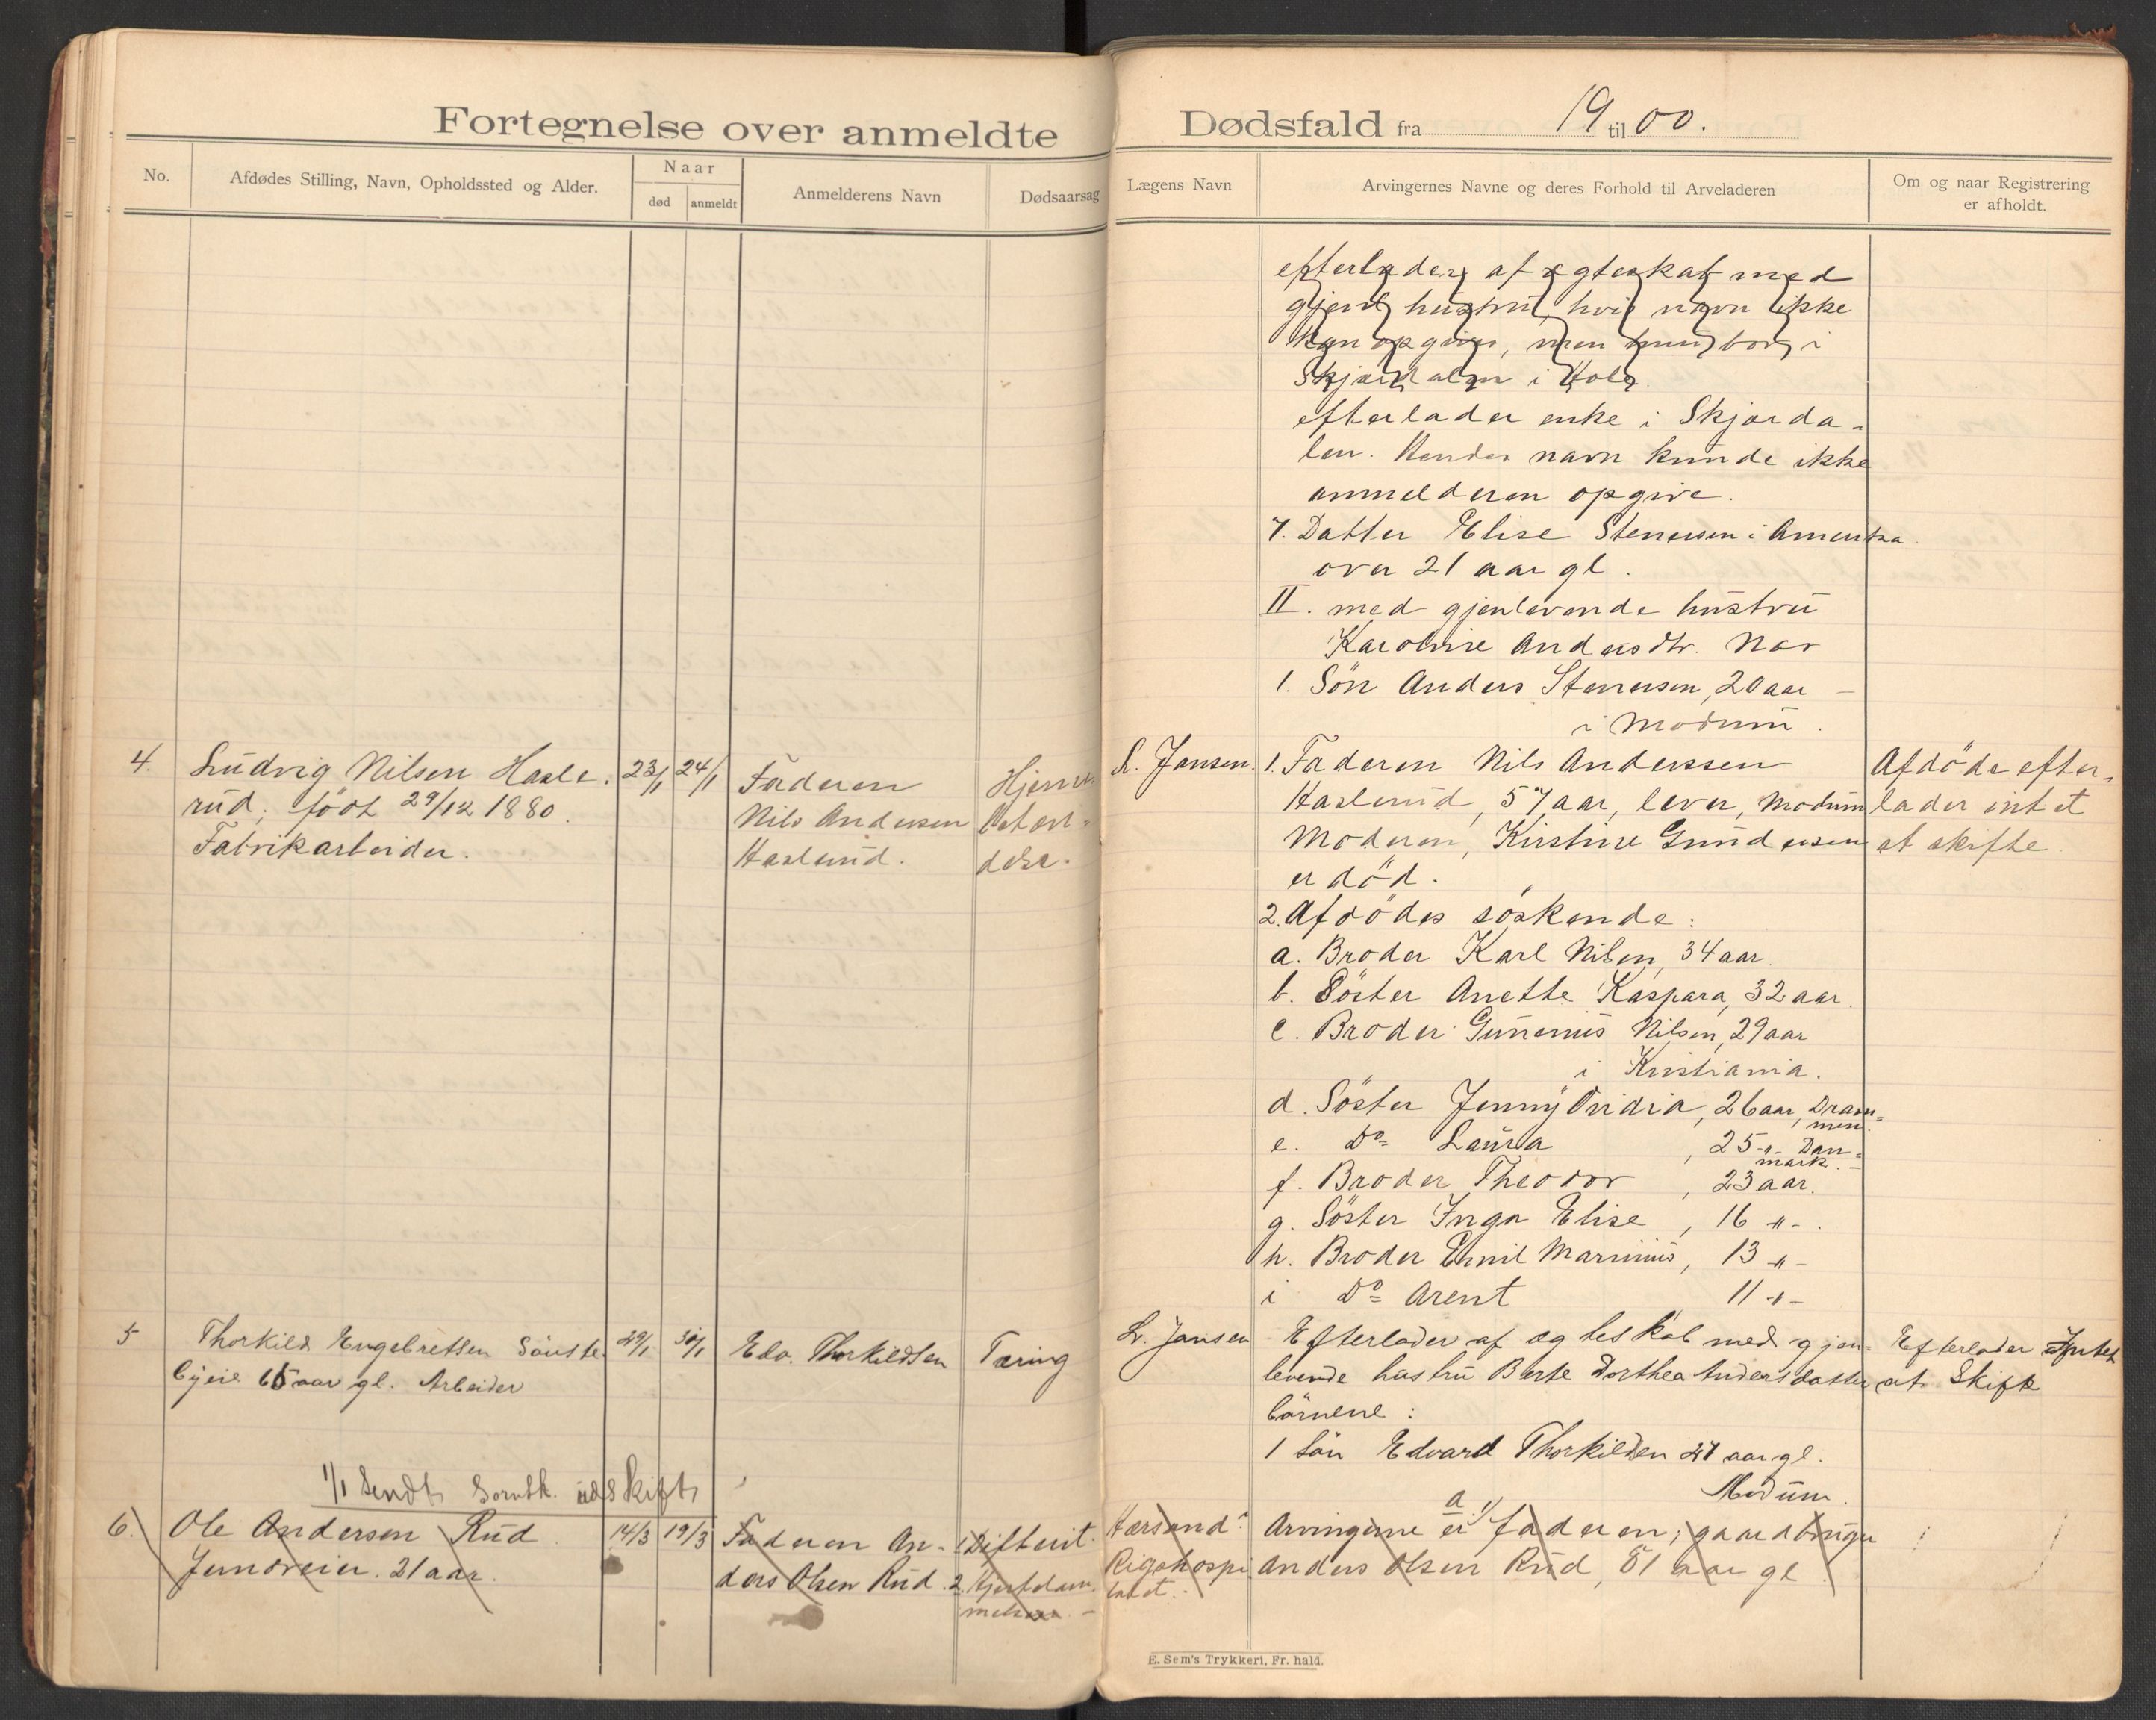 Fortegnelse over anmeldte
No.
Afdødes Stilling, Navn, Opholdssted og Alder.
Naar
død
anmeldt
Anmelderens Navn
Dødsaarsag
4.
Ludvig Nilsen Hasle-
rud, født 29/12 1880.
Fabrikarbeider.
23/1
24/1
Faderen
Nils Andersen
Haslerud.
Hjerne
betæn-
delse.
5
Thorkild Engebretsen
eie 65 aar gl. Arbeider
29/1
30/1
Edv. Thorkildsen
Tæring
1/1 Sendt Sorensk. udskift
6.
Ole Andersen Rud
21 aar.
14/3
19/3
Faderen An-
ders Olsen Rud.
1. Difterit.
2. Hjertelam-
melse. -
Dødsfald fra 19 til 00.
Lægens Navn
Arvingernes Navne og deres Forhold til Arveladeren
Om og naar Registrering
er afholdt.
efterlader af ægteskab med
gjenl. hustru, hvis navn ikke
kan opgives, men hun bor i
Skjærdalen i Hole
efterlader enke i Skjærda-
len. Hendes navn kunde ikke
anmelderen opgive.
7. Datter Elise Stenersen i Amerika.
over 21 aar gl.
II. med gjenlevende hustru
Karoline Andersdtr.
1. Sön Anders Stenersen, 20 aar -
i Modum.
L. Jansen.
1. Faderen Nils Anderssen
Haslerud, 57 aar, lever, Modum
Moderen, Kirstine Gundersen
er död.
2. Afdödes söskende:
a. Broder Karl Nilsen, 34 aar.
b. Söster Anette Kaspara, 32 aar.
c. Broder Gunerius Nilsen, 29 aar
i Kristiania.
d. Söster Jenny Ovidia, 26 aar, Dram-
men.
e. Do Laura, 25 -"- Dan-
mark. -
f. Broder Theodor, 23 aar.
g. Söster Inga Elise, 16 -"-.
h. Broder Emil Marinius, 13 -"-
i Do Arent 11 -"-
Afdöde efter-
lader intet
at skifte.
L. Jansen
Efterlader af ægteskab med gjen-
levende hustru Berte Dorthea Andersdatter
börnene:
1 Sön Edvard Thorkildsen 27 aar gl.
Modum.
Efterlader Intet
at Skifte
Rigshospi
talet.
Arvingerne er faderen, gaardbruger
Anders Olsen Rud, 51 aar gl
E. Sem's Trykkeri, Fr. hald.